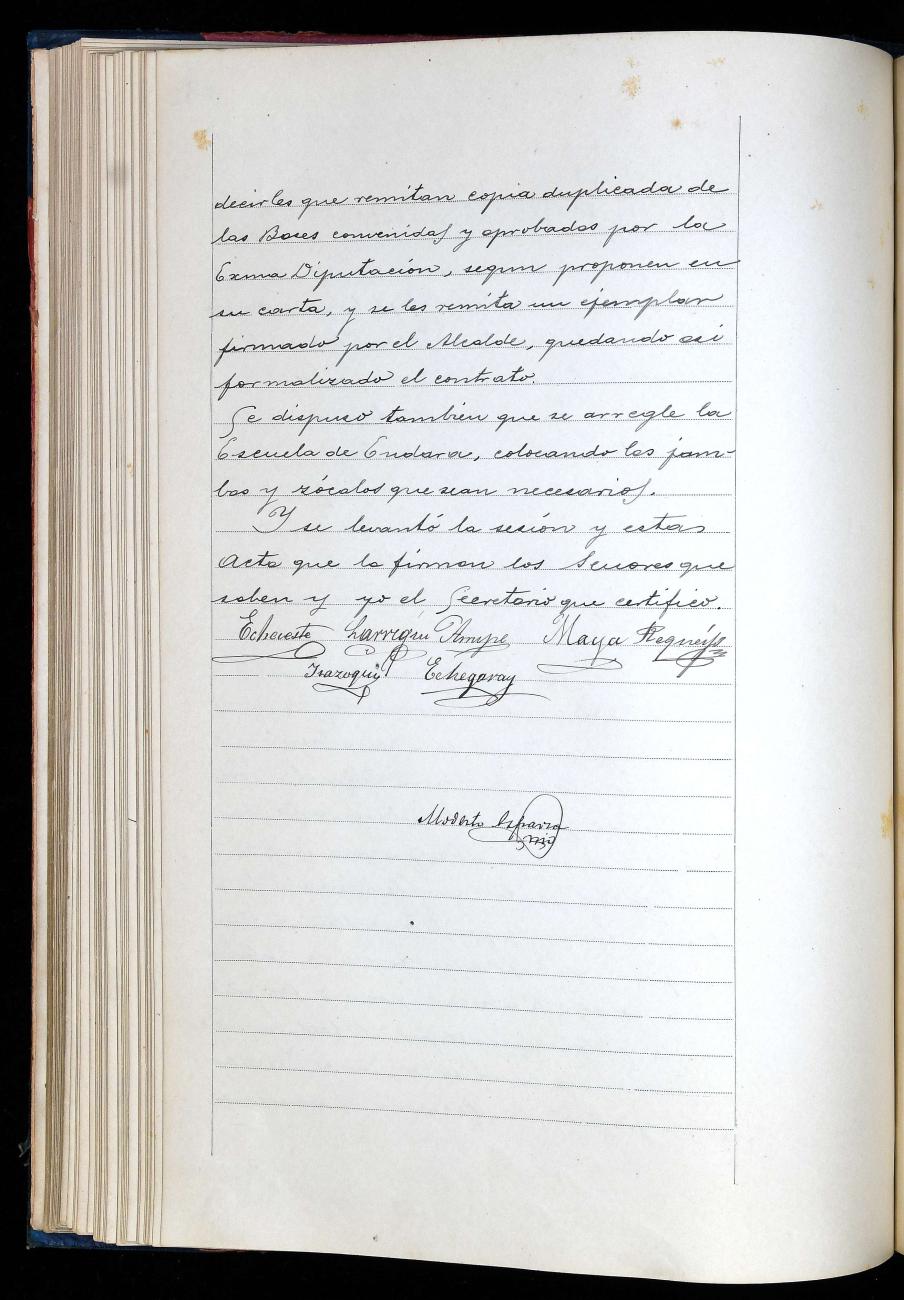 decirles que remitan copia duplicada de
las Bases convenidas y aprobadas por la
Exma Diputación, segun proponen en
su carta, y se les remita un ejemplar
firmado por el Alcalde, quedando asi
formalizado el contrato.
Se dispuso también que se arregle la
Escuela de Endara, colocando las jam-
bas y zócalos que sean necesarios.
Y se levantó la sesión y esta
Acta que la firman los Senores que
saben y yo el Secretario que certifico.
Echeveste Larregui Maya
Irazoqui Echegaray
Modesto Esparza